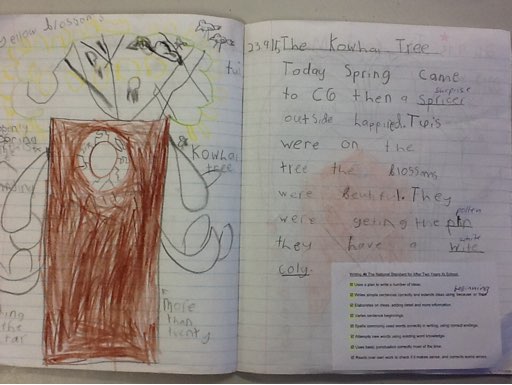 yellow blossoms
tui
Kowhai
tree
More
than
twenty
23.9.15 The Kowhai Tree
Today Spring came
surprise
to C6 then a Spricer
outside happind. Tuis
were on the
tree the blossoms
were beutiful. They
were geting the
pollen
they have a wite
white
coly.
Writing At The National Standard for After Two Years At School.
Uses a plan to write a number of ideas.
beginning
Writes simple sentences correctly and extends ideas using because or
Elaborates on ideas, adding detail and more information.
Varies sentence beginnings.
Spells commonly used words correctly in writing, using correct endings.
Attempts new words using existing word knowledge.
Uses basic punctuation correctly most of the time.
Reads over own work to check if it makes sense, and corrects some errors.